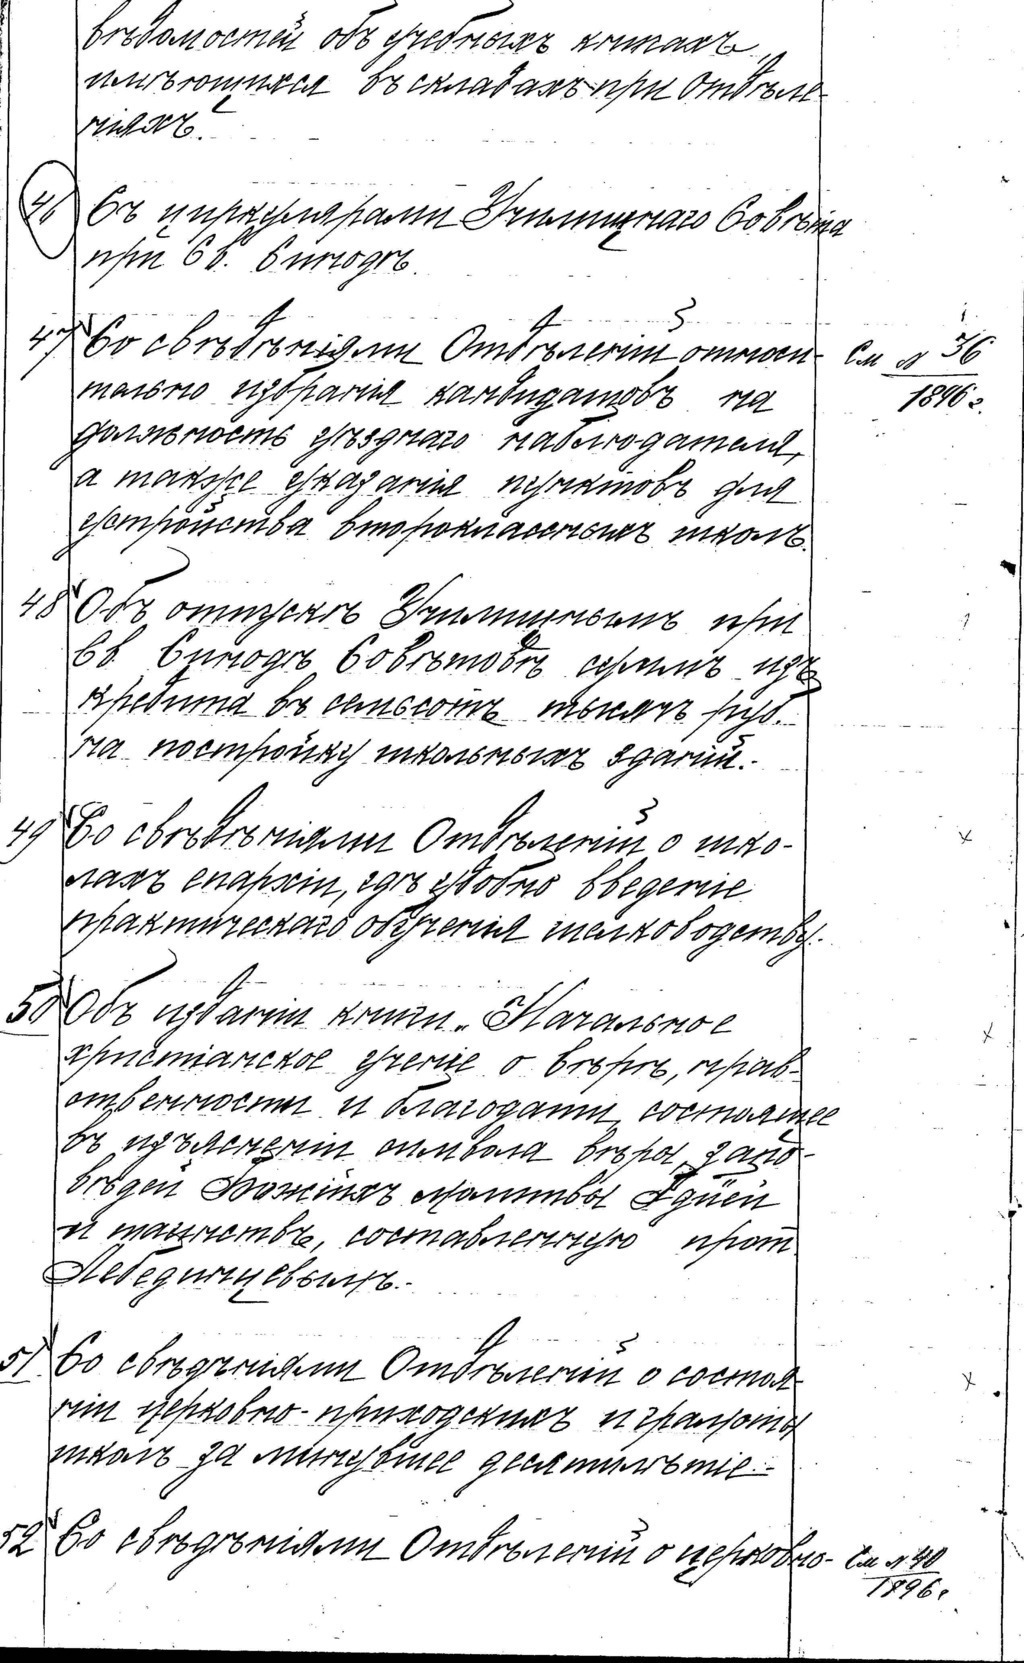 вѣдомостей объ учебныхъ книгахъ,
имѣющихся въ складахъ при Отдѣле-
ніяхъ.
46 Съ циркулярами Училищнаго Совѣта
при Св. Синодѣ.
47 Со свѣдѣніями Отдѣленій относи- См № 36
тельно избранія кандидатовъ на 1896 г.
должность уѣзднаго наблюдателя,
а также указанія пунктовъ для
устройства второклассныхъ школъ.
48 Объ отпускѣ Училищнымъ при
Св. Синодѣ Совѣтомъ суммъ изъ
кредита въ семьсотъ тысячъ руб.
на постройку школьныхъ зданій.-
49 Со свѣдѣніями Отдѣленій о шко-
лахъ епархіи, гдѣ удобно введеніе
практическаго обученія шелководству.
50 Объ изданіи книги „Начальное
христіанское ученіе о вѣрѣ, нрав-
ственности и благодати, состоящее
въ изъясненіи символа вѣры, запо-
вѣдей Божіихъ молитвы Г дней
и таинствъ, составленную прот
Лебединцевымъ.-
51 Со свѣдѣніями Отдѣленій о состоя-
ніи церковно-приходскихъ и грамоты
школъ за минувшее десятилѣтіе.-
52 Со свѣдѣніями Отдѣленій о церковно- См № 40
1896 г.